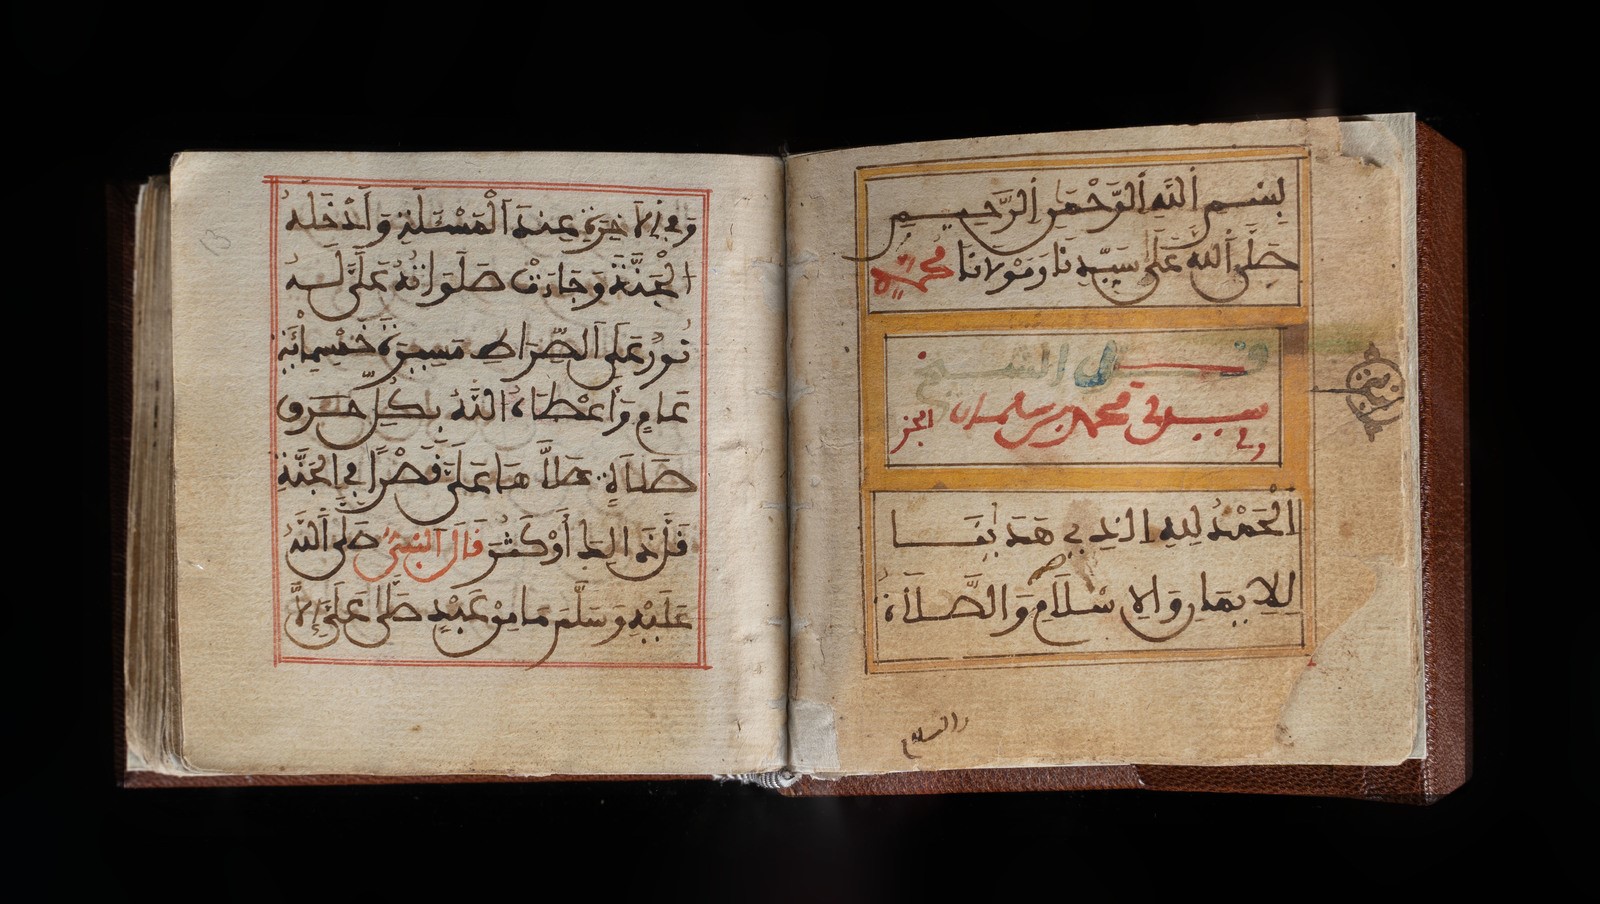 بسم الله الرحمن الرحيم
صلى الله على سيدنا ومولانا محمد
قال الشيخ
سيدي محمد بن سليمان الجز
ولي
الحمد لله الذي هدينا
للايمان والاسلام والصلاة
والسلام
وَفِي الاَخِرَةِ عِندَ الْمَسْئَلَةِ وَأَدْخَلَهُ
الْجَنَّةَ وَجَاءَتْ صَلَوَاتُهُ عَلَىَّ لَهُ
نُورٌ عَلَى الصِّرَاطِ مَسِيرَةَ خَمْسِمِائَةِ
عَامٍ وَأَعْطَاهُ اللَّهُ بِكُلِّ
صَلَاةٍ صَلَّاهَا عَلَىَّ قَصْرًا فِي الْجَنَّةِ
قَلَّ ذَالِكَ أَوْ كَثُرَ قَالَ النَّبِيُّ صَلَّى اللَّهُ
عَلَيْهِ وَسَلَّمَ مَا مِنْ عَبْدٍ صَلَّى عَلَىَّ إِلاَّ
13